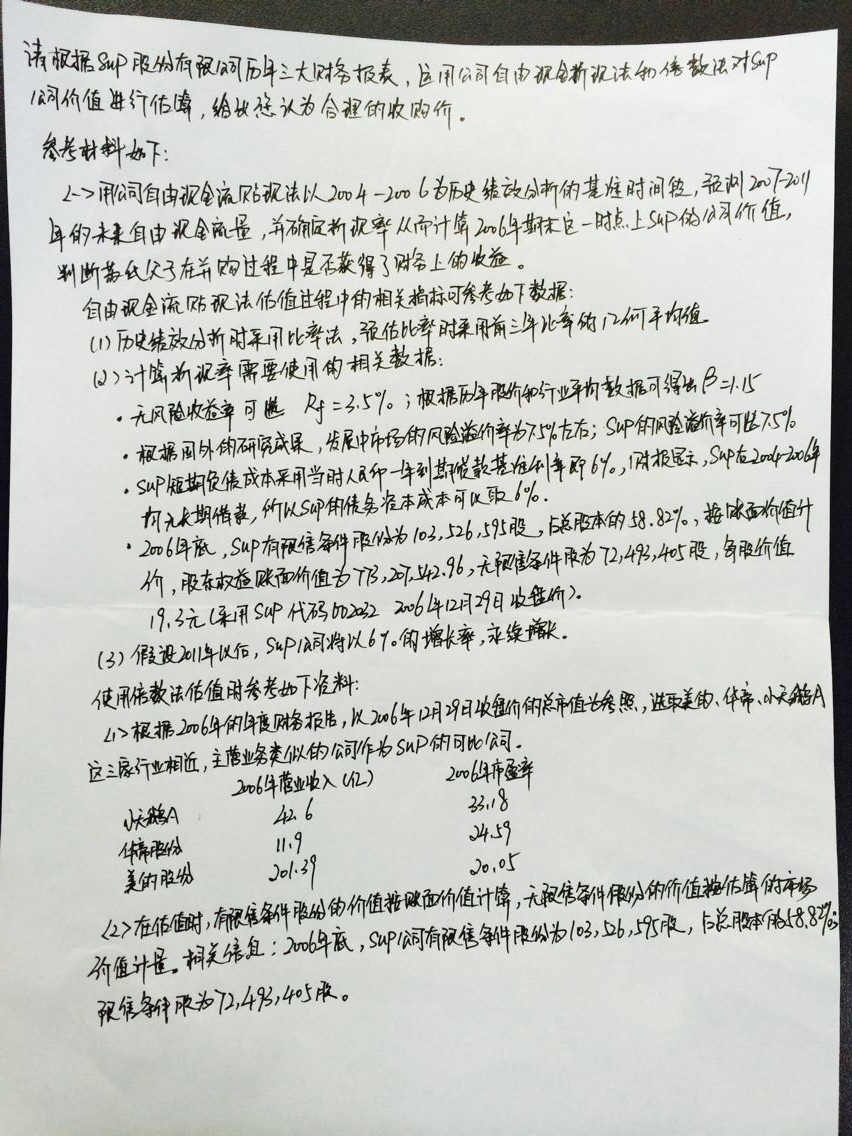 请根据SUP股份有限公司历年三大财务报表，运用公司自由现金折现法和倍数法对SUP
公司价值进行估算，给出您认为合理的收购价。
参考材料如下：
<一>用公司自由现金流贴现法以2004-2006为历史绩效分析的基准时间段，预测2007-2011
年的未来自由现金流量，并确定折现率从而计算2006年期末这一时点上SUP的公司价值，
判断苏氏父子在并购过程中是否获得了财务上的收益。
自由现金流贴现法估值过程中的相关指标可参考如下数据：
(1)历史绩效分析时采用比率法，预估比率时采用前三年比率的几何平均值
(2)计算折现率需要使用的相关数据：
·无风险收益率可选 Rf=3.5%；根据历年股价和行业平均数据可得出β=1.15
·根据国外的研究成果，发展中市场的风险溢价率为7.5%左右；SUP的风险溢价率可选7.5%
·SUP短期负债成本采用当时人民币一年到期贷款基准利率即6%，财报显示，SUP在2004-2006年
均无长期借款，所以SUP的债务资本成本可以取6%.
·2006年底，SUP有限售条件股份为103,526,595股，占总股本的58.82%，按账面价值计
价，股东权益账面价值为773,207,542.96，无限售条件股为72,493,405股，每股价值
19.3元(采用SUP代码002032 2006年12月29日收盘价)。
(3)假设2011年以后，SUP公司将以6%的增长率，永续增长。
使用倍数法估值时参考如下资料：
<1>根据2006年的年度财务报告，以2006年12月29日收盘价的总市值为参照，选取美的、华帝、小天鹅A
这三家行业相近，主营业务类似的公司作为SUP的可比公司。
2006年营业收入(亿) 2006年市盈率
小天鹅A 42.6 33.18
华帝股份 11.9 24.59
美的股份 201.39 20.05
<2>在估值时，有限售条件股份的价值按账面价值计算，无限售条件股份的价值按估算的市场
价值计量。相关信息：2006年底，SUP公司有限售条件股份为103,526,595股，占总股本的58.82%；
限售条件股为72,493,405股。